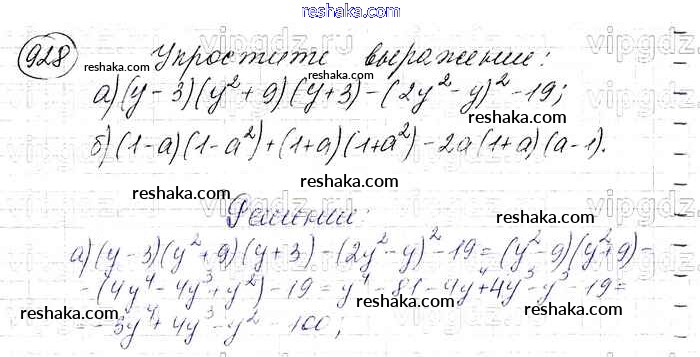 reshaka.com
928 Упростите выражение:
reshaka.com reshaka.com
а) (y-3)(y²+9)(y+3)-(2y²-y)²-19;
reshaka.com
б) (1-a)(1-a²)+(1+a)(1+a²)-2a(1+a)(a-1).
reshaka.com reshaka.com
Решение:
reshaka.com
а) (y-3)(y²+9)(y+3)-(2y²-y)²-19=(y²-9)(y²+9)-
-(4y⁴-4y³+y²)-19=y⁴-81-4y⁴+4y³-y³-19=
reshaka.com reshaka.com
=-3y⁴+4y³-y²-100;
reshaka.com